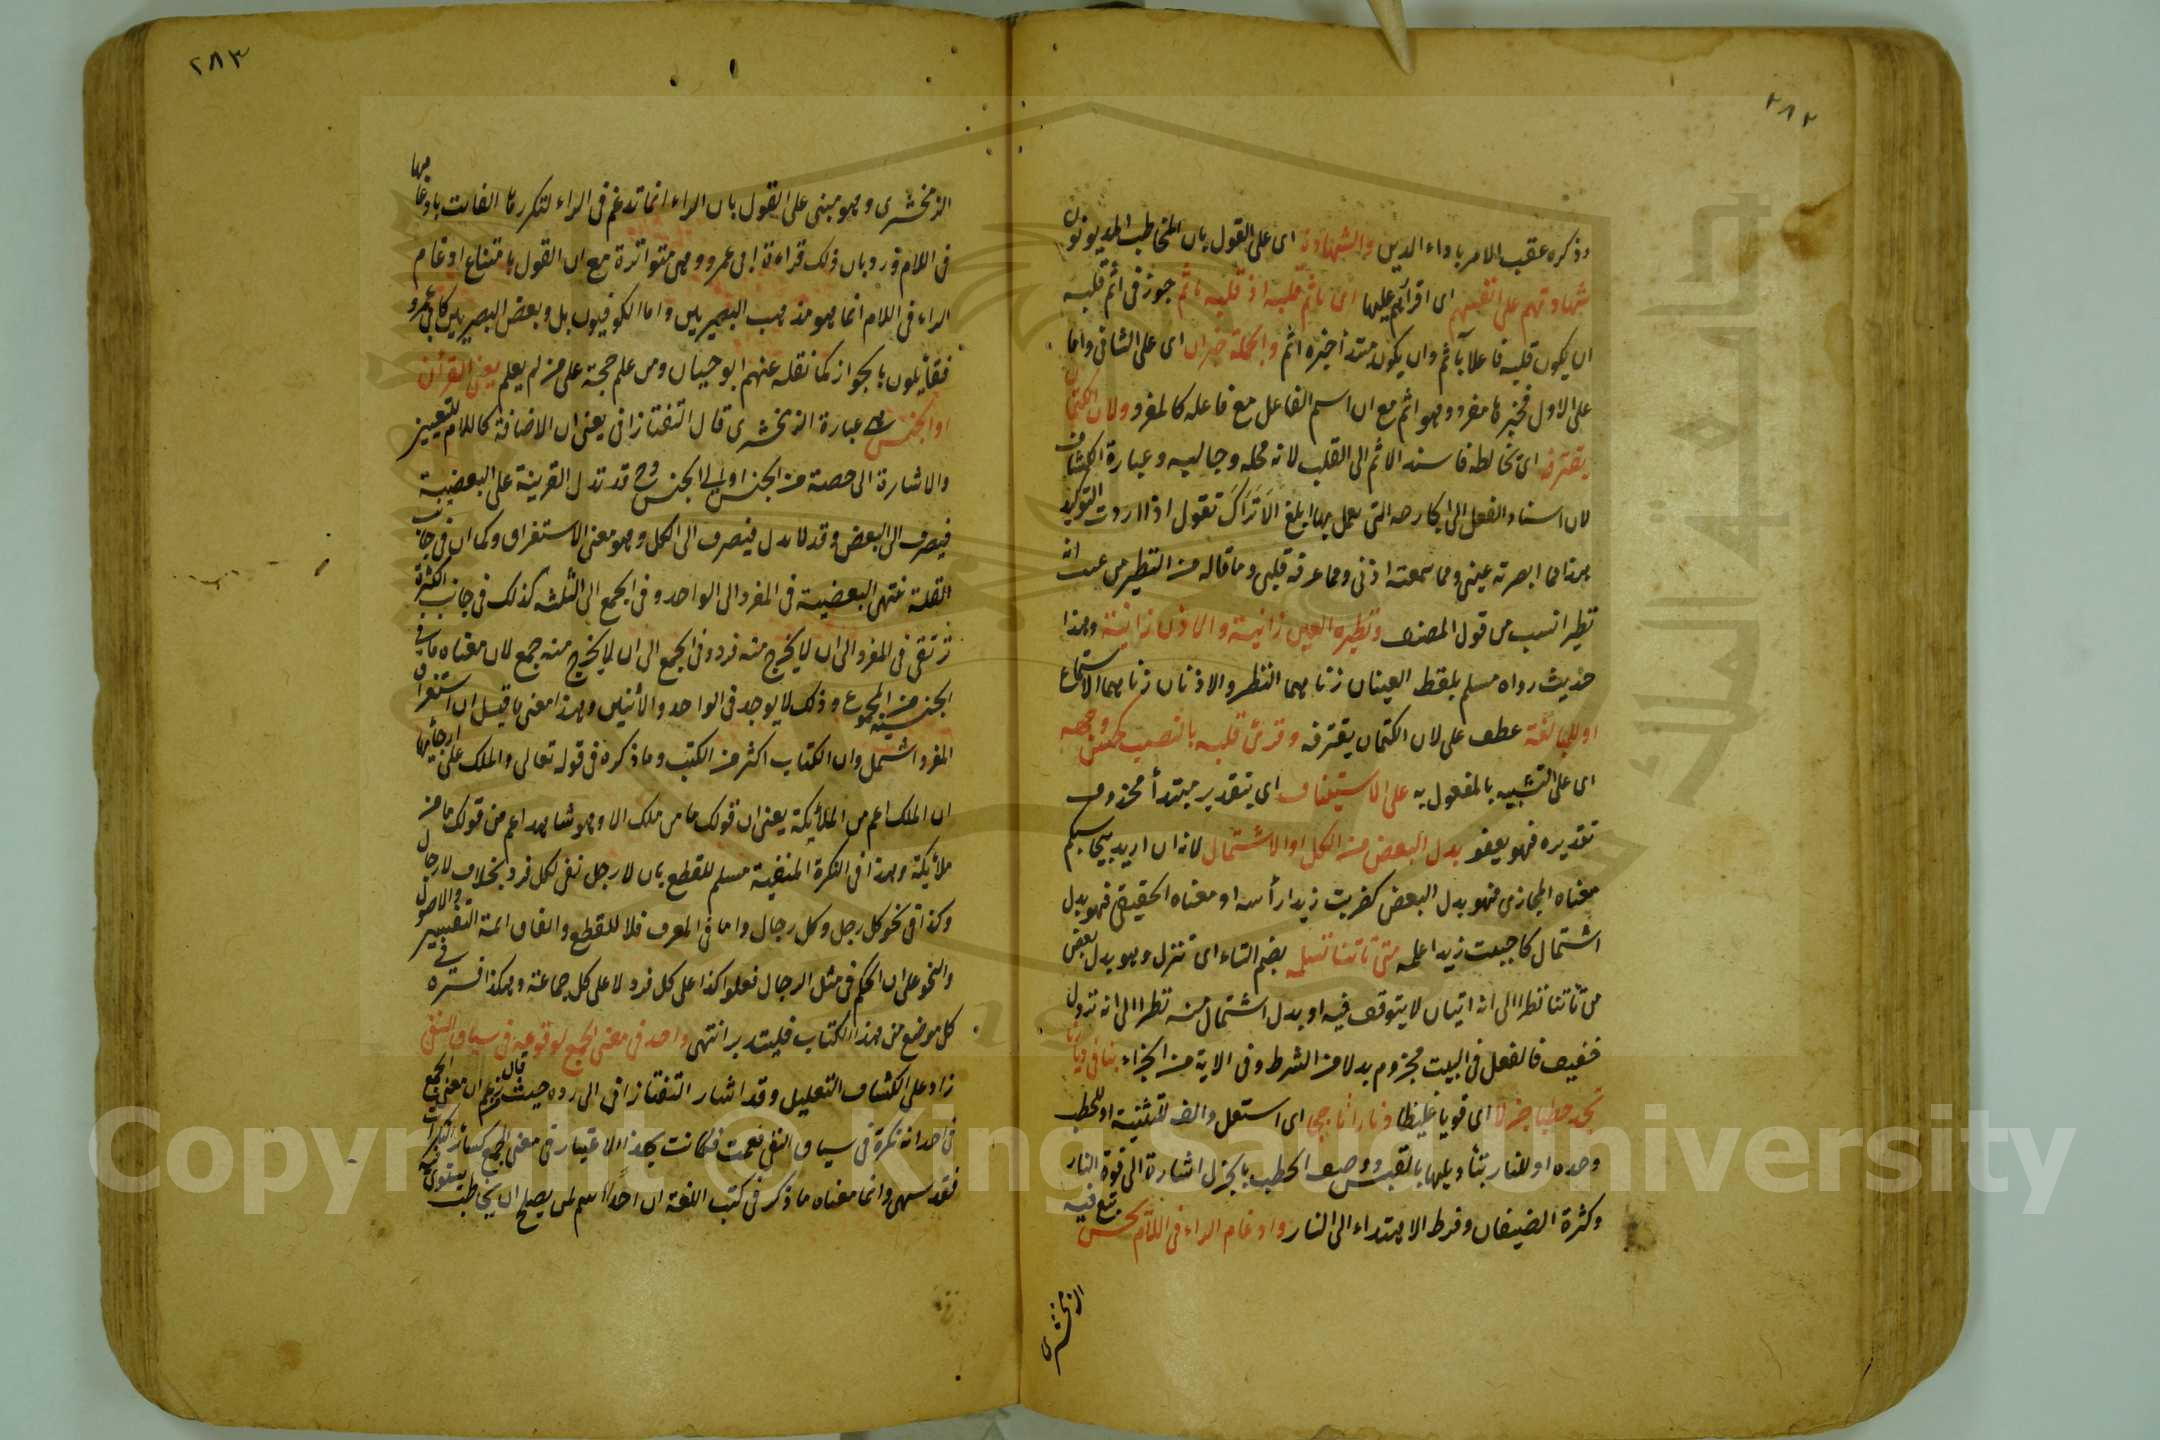 ٢٨٢
وذكره عقب الامر باداء الدين والشهادة اى على القول بان المخاطب المديونون
شهادتهم على انفسهم اى اقرارهم عليها اى ياثم قلبه او قلبه ياثم جوز فى اثم قلبه
ان يكون قلبه فاعلا بآثم وان يكون مبتدأ خبره اثم والجملة خبر ان اى على الثانى واما
على الاول فخبرها مفرد وهو اثم مع ان اسم الفاعل مع فاعله كالمفرد ولان الكتمان
يقترفه اى تخالطه فاسند الاثم الى القلب لانه محله وجالبه وعبارة الكشاف
لان اسناد الفعل الى الجارحة التى يعمل بها ابلغ الا تراك تقول اذا اردت التوكيد
هذا مما ابصرته عينى ومما سمعته اذنى ومما عرفه قلبى وما قاله من التنظير من عنده انه
نظير انسب من قول المصنف ونظيره العين زانية والاذن زانية وهذا
حديث رواه مسلم بلفظ العينان زناهما النظر والاذنان زناهما الاستماع
او للمبالغة عطف على لان الكتمان يقترفه وقرئ قلبه بالنصب كحسن وجهه
اى على التشبيه بالمفعول به على الاستيناف اى بتقدير مبتدأ محذوف
تقديره فهو يغفر بدل البعض من الكل او الاشتمال لانه ان اريد بيحاسبكم
معناه المجازى فهو بدل البعض كضربت زيدا رأسه او معناه الحقيقى فهو بدل
اشتمال كاحببت زيدا علمه متى تاتنا تلمم بضم التاء اى تنزل وهو بدل بعض
من تأتنا نظرا الى انه اتيان لا يتوقف فيه او بدل اشتمال منه نظرا الى انه نزول
خفيف فالفعل فى البيت مجزوم بدلا من الشرط وفى الاية من الجزاء بنا فى ديارنا
تجد حطبا جزلا اى قويا غليظا ونارا تاججا اى استعل والفه للتثنية او للحطب
وحده او للنار بتأويلها بالقبس ووصف الحطب بالجزل اشارة الى قوة النار
وكثرة الضيفان وفرط الاهتداء الى النار وادغام الراء فى اللام لحن تبع فيه
الزمخشرى
٢٨٣
الزمخشرى وهو مبنى على القول بان الراء انما تدغم فى الراء لتكررها الفائت بادغامها
فى اللام ورد بان ذلك قراءة ابى عمرو وهى متواترة مع ان القول بامتناع ادغام
الراء فى اللام انما هو مذهب البصريين واما الكوفيون بل وبعض البصريين كابى عمرو
فقائلون بالجواز كما نقله عنهم ابو حيان ومن علم حجة على من لم يعلم يعنى القرآن
او الجنس هى عبارة الزمخشرى قال التفتازانى يعنى ان الاضافة كاللام للتعيين
والاشارة الى حصة من الجنس او الى الجنس وح قد تدل القرينة على البعضية
فيصرف الى البعض وقد لا تدل فيصرف الى الكل وهو معنى الاستغراق وكما ان فى جانب
القلة تنتهى البعضية فى المفرد الى الواحد وفى الجمع الى الثلثة كذلك فى جانب الكثرة
ترتقى فى المفرد الى ان لا يخرج منه فرد وفى الجمع الى ان لا يخرج منه جمع لان معناه ما فى
الجنسية من الجموع وذلك لا يوجد فى الواحد والاثنين وهذا معنى ما قيل ان استغراق
المفرد اشمل وان الكتاب اكثر من الكتب وما ذكره فى قوله تعالى والملك على ارجائها
ان الملك اعم من الملائكة يعنى ان قولك ما من ملك الا وهو شاهد اعم من قولك ما من
ملائكة وهذا فى النكرة المنفية مسلم للقطع بان لا رجل نفى لكل فرد بخلاف لا رجال
وكذا فى نحو كل رجل وكل رجال واما فى المعرف فلا للقطع واتفاق ائمة التفسير والاصول
والنحو على ان الحكم فى مثل الرجال فعلوا كذا على كل فرد لا على كل جماعة وهكذا فسره فى
كل موضع من هذا الكتاب فليتدبر انتهى واحد فى معنى الجمع لوقوعه فى سياق النفى
زاد على الكشاف التعليل وقد اشار التفتازانى الى رده حيث قال زعم ان معنى الجمع
فى احد انه نكرة فى سياق النفى فعمت فكانت بهذا الاعتبار فى معنى الجمع كسائر النكرات
فقد سهى وانما معناه ما ذكر فى كتب اللغة ان احدا اسم لمن يصلح ان يخاطب يستوى فيه
Copyright © King Saud University